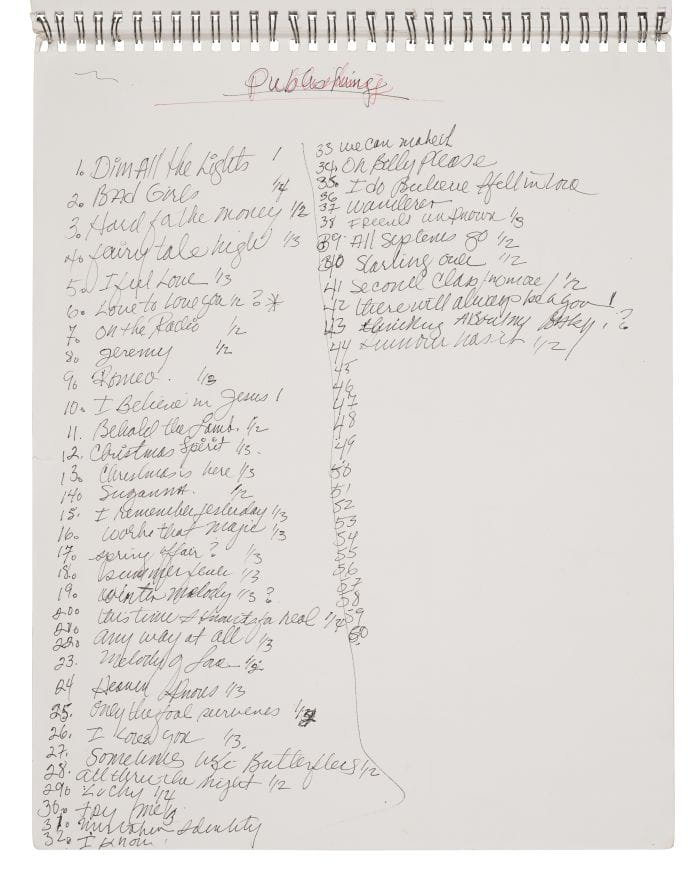 Publishing
1. Dim All the Lights 1
2. BAd Girls 1/4
3. Hard for the money 1/2
4. fairy tale high 1/3
5. I feel Love 1/3
6. Love to love you ? *
7. on the Radio 1/2
8. Jeremy 1/2
9. Romeo. 1/3
10. I Believe in Jesus 1
11. Behold the Lamb. 1/2
12. Christmas Spirit 1/3.
13. Christmas is here 1/3
14. Suganna. 1/2
15. I remember yesterday 1/3
16. Worke that magic 1/3
17. spring affair ? 1/3
18. summer fever 1/3
19. winter melody 1/3 ?
20. this time I know its for real 1/4
21.
22. any way at all 1/3
23. Melody of Love 1/2
24 Heaven Knows 1/3
25. only the fool survives
26. I Love you 1/3.
27. Sometimes like Butterflies 1/2
28. all thru the night 1/2
29. Lucky 1/4
30. Try me
31. mistaken Identity
32. I know.
33 we can
34. Oh Billy Please
35. I do Believe I fell in love
36
37 wanderer
38 Friends unknown 1/3
39. All Systems go 1/2
40 Starting over 1/2
41 Second Class 1/2
42 there will always be a you 1
43 thinking About my Baby. ?
44 rumour has it 1/2
45
46
47
48
49
50
51
52
53
54
55
56
57
58
59
60